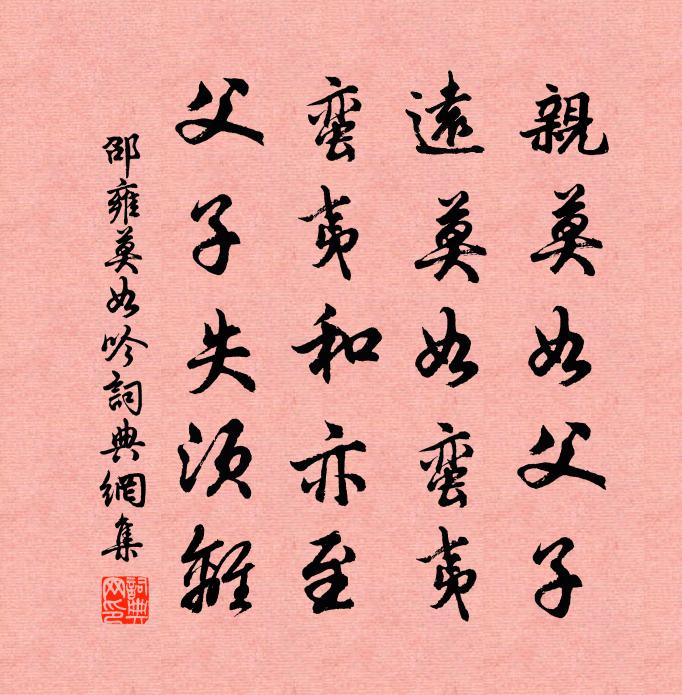 親莫如父子
遠莫如蛮夷
蛮夷和亦至
父子失須離
邵雍莫如吟詞典網集
詞典网印